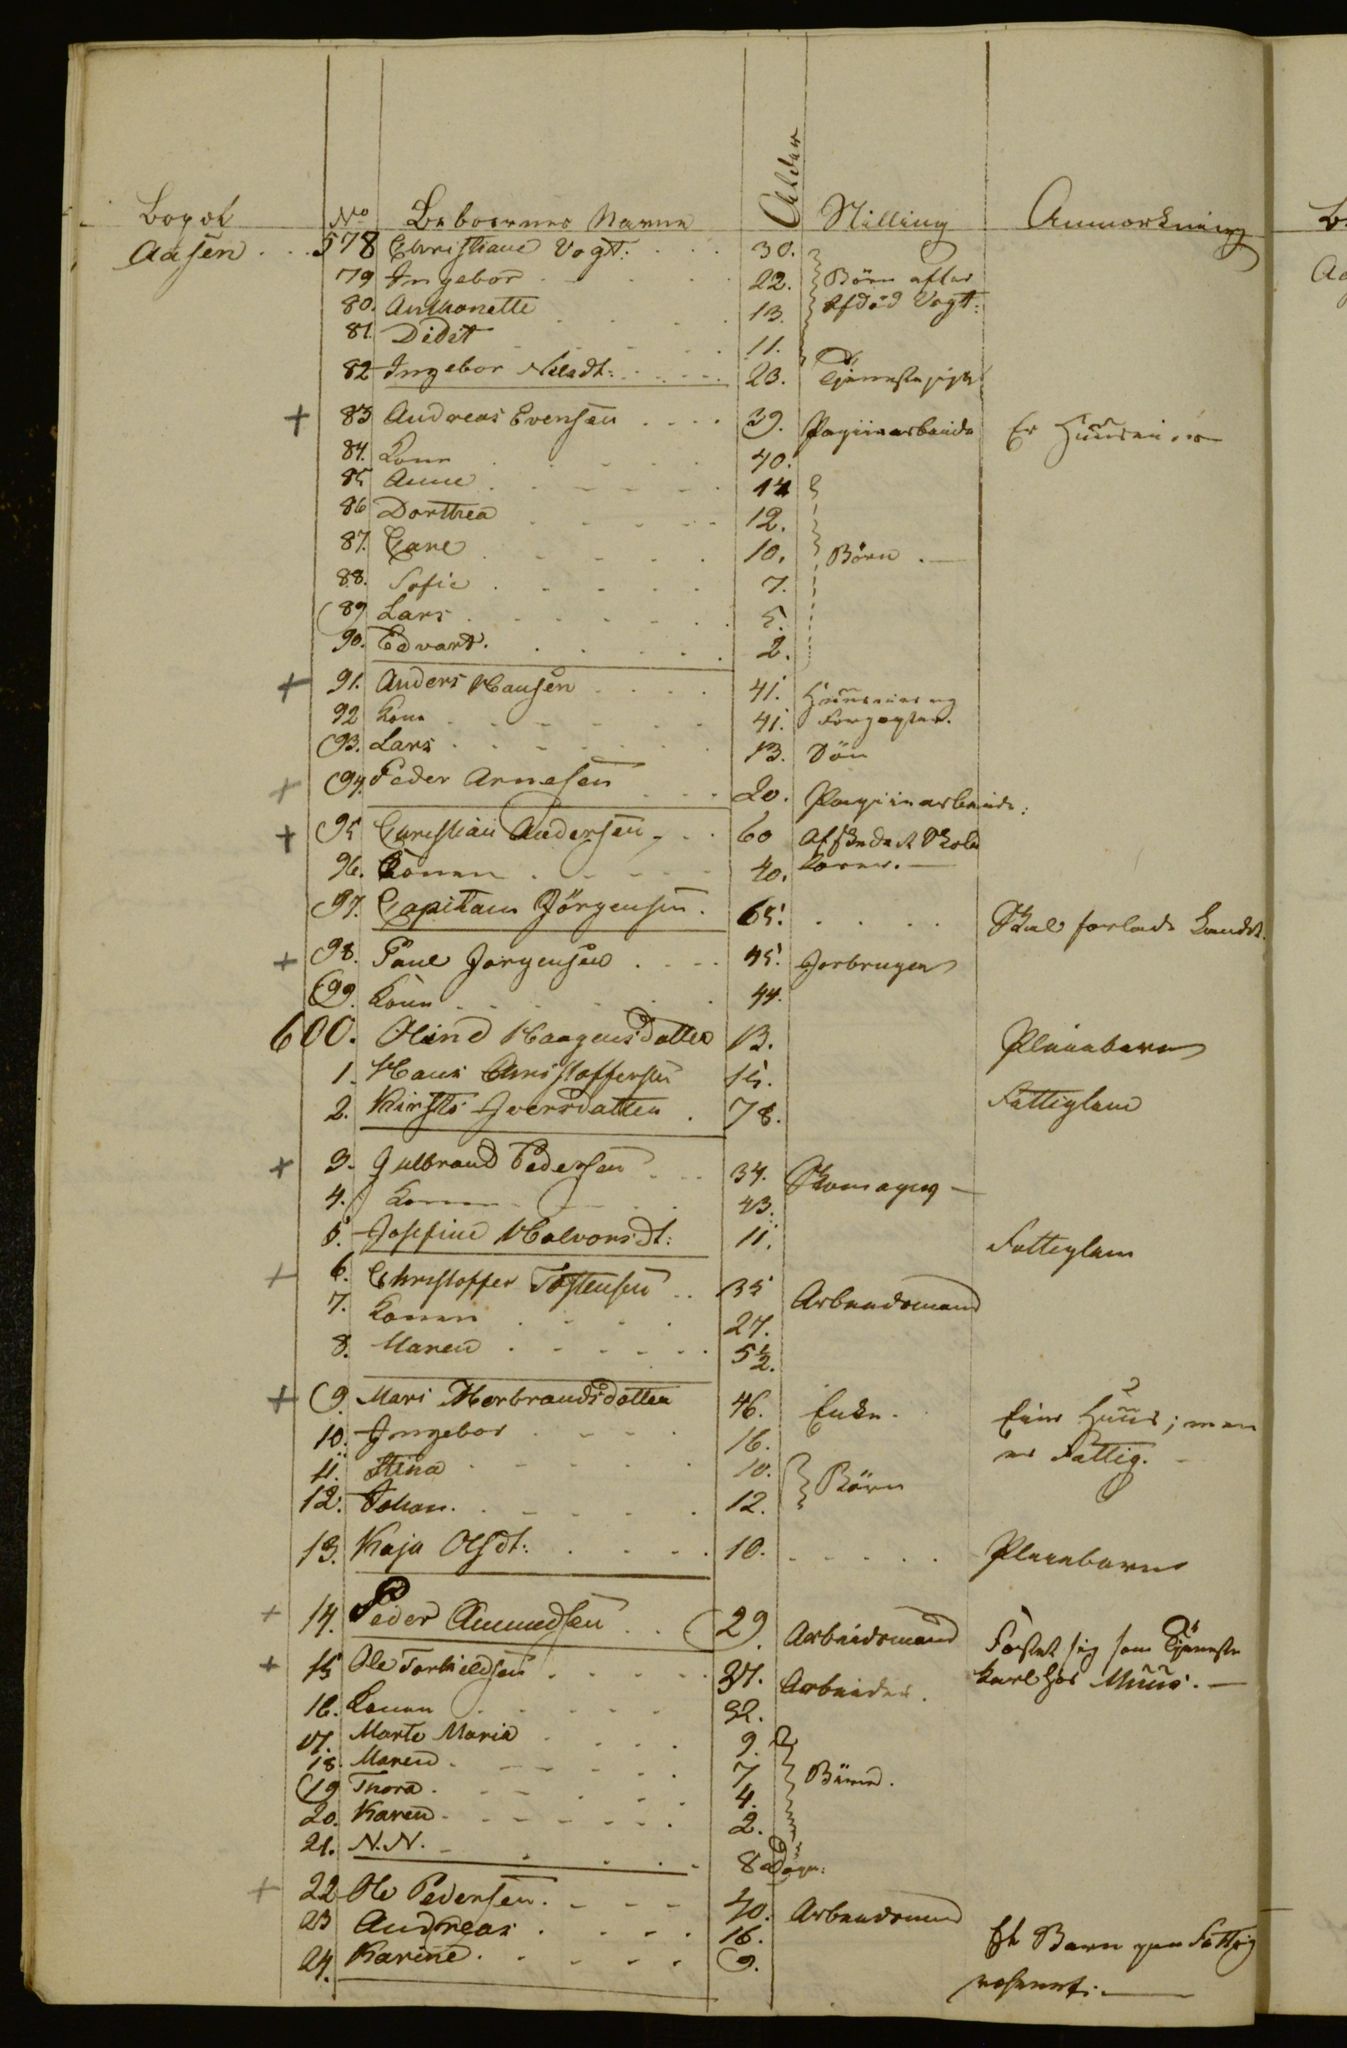 Bopæl No Beboernes Navne Alder Stilling Anmærkning
Aasen . . . 578 Christiane Vogt: . . . 30.
79 Ingebor . . . . 22. Börn efter
80. Anthonette . . . . 13. Afdöd Vogt:
81. Didit . . . . 11.
82 Ingebor Nilsdt: . . . . 23. Tjenestepige
+ 83 Andreas Evensen . . . . 39. Papiirarbeide Er Huuseier
84. Kone . . . . 40.
85 Anne . . . . 14
86 Dorthea . . . . 12.
87. Carl . . . . 10. Börn . —
88. Sofie . . . . 7.
89 Lars . . . . 5.
90. Edvart. . . . . 2.
+ 91. Anders Hansen . . . . 41. Huuseier og
92 Kone . . . . 41. Forpagter.
93. Lars . . . . 13. Sön
+ 94. Peder Arnesen . . . 20. Papiirarbeide:
+ 95 Christian Andersen . . . 60 Afskediget Skole
96. Konen . . . . 40. lærer. —
97. Capitain Jörgensen . 65. . . . . Skal forlade Landet.
+ 98. Paul Jorgensen . . . . 45. Jorbruger
99. Kone . . . . 44.
600. Oline Haagensdatter 13. Pleiebarn
1. Hans Christoffersen 15.
2. Kirsti Iversdatter . 78. Fattiglem
+ 3. Gulbrand Pedersen . . . 34. Skomager —
4. Konen . . . 43.
5. Josefine Halvorsdt: 11. Fattiglem
+ 6. Christoffer Tostensen . . 35 Arbeidsmand
7. Konen . . . . 27.
8. Maren . . . . 5½.
+ 9. Mari Herbrandsdatter 46. Enke. Eier Huus; men
10. Ingebor . . . . 16. er Fattig. —
11. Stina . . . . 10. Börn
12. Johan. . . . . 12.
13. Kaja Olsdt: . . . . 10. . . . . Pleiebarn
+ 14. Peder Amundsen . . . 29. Arbeidsmand Fæstet sig som Tjeneste
+ 15 Ole Torkieldsen . . . . 37. Arbeider. karl hos Muus. —
16. Konen . . . . 32.
17. Marte Maria . . . . 9.
18. Maren . . . . 7 Börn.
19 Thora. . . . . 4.
20. Karen . . . . 2.
21. N.N. . . . . 8 Dage:
+ 22 Ole Pedersen. . . . 40. Arbeidsmand
23 Andreas . . . . 16. Et Barn paa Fattig
24. Karine . . . . 9. væsenet. —